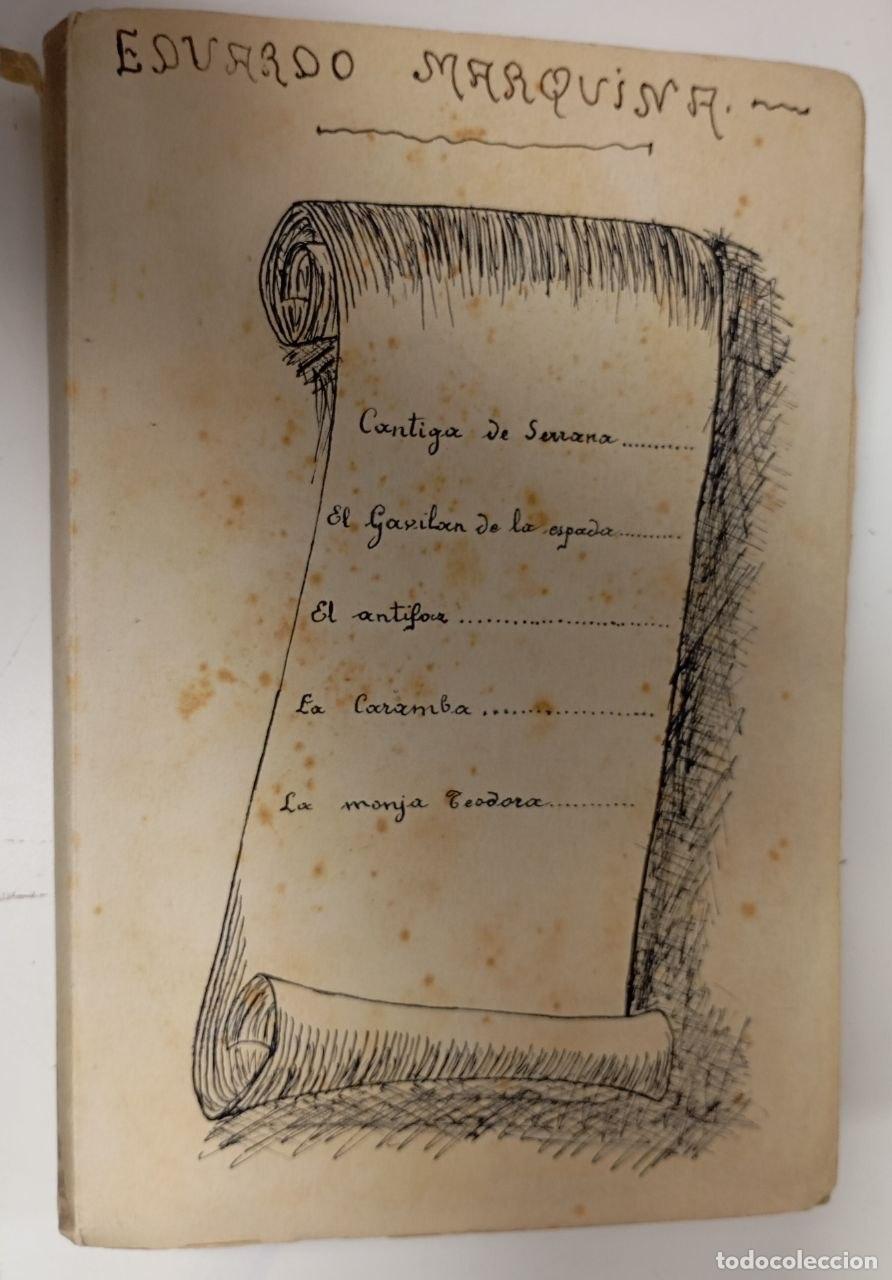 EDUARDO MARQUINA.
Cantiga de Serrana...........
El Gavilan de la espada...........
El antifaz.........................
La Caramba.....................
La monja Teodora............
todocoleccion